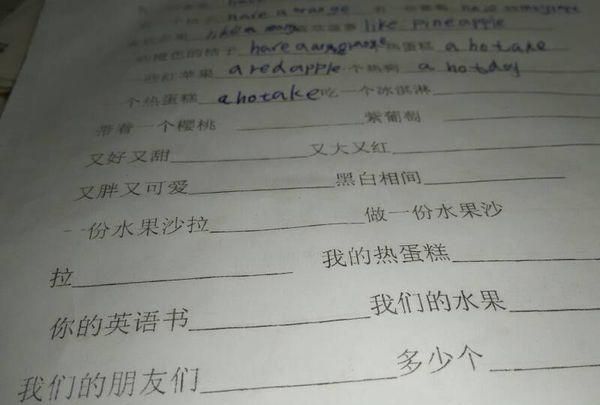 have a orange
like pineapple
橙色的桔子 热蛋糕 a hotake
一些红苹果 a red apple 个热狗 a hotdog
个热蛋糕 a hotake 吃一个冰淇淋
带着一个樱桃 紫葡萄
又好又甜 又大又红
又胖又可爱 黑白相间
一份水果沙拉 做一份水果沙
拉 我的热蛋糕
你的英语书 我们的水果
我们的朋友们 多少个